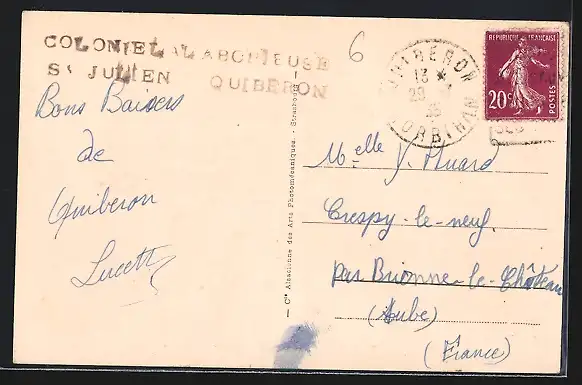 COLONIE LA LABORIEUSE
St JULIEN QUIBERON
6
QUIBERON
13
MORBIHAN
REPUBLIQUE FRANÇAISE
20c
POSTES
Bons Baisers
de
Quiberon
Lucette
— Cie Alsacienne des Arts Photomécaniques. - Strasbourg
Melle Y.
Crespy-le-neuf
par Brienne-le-Château
(Aube)
(France)